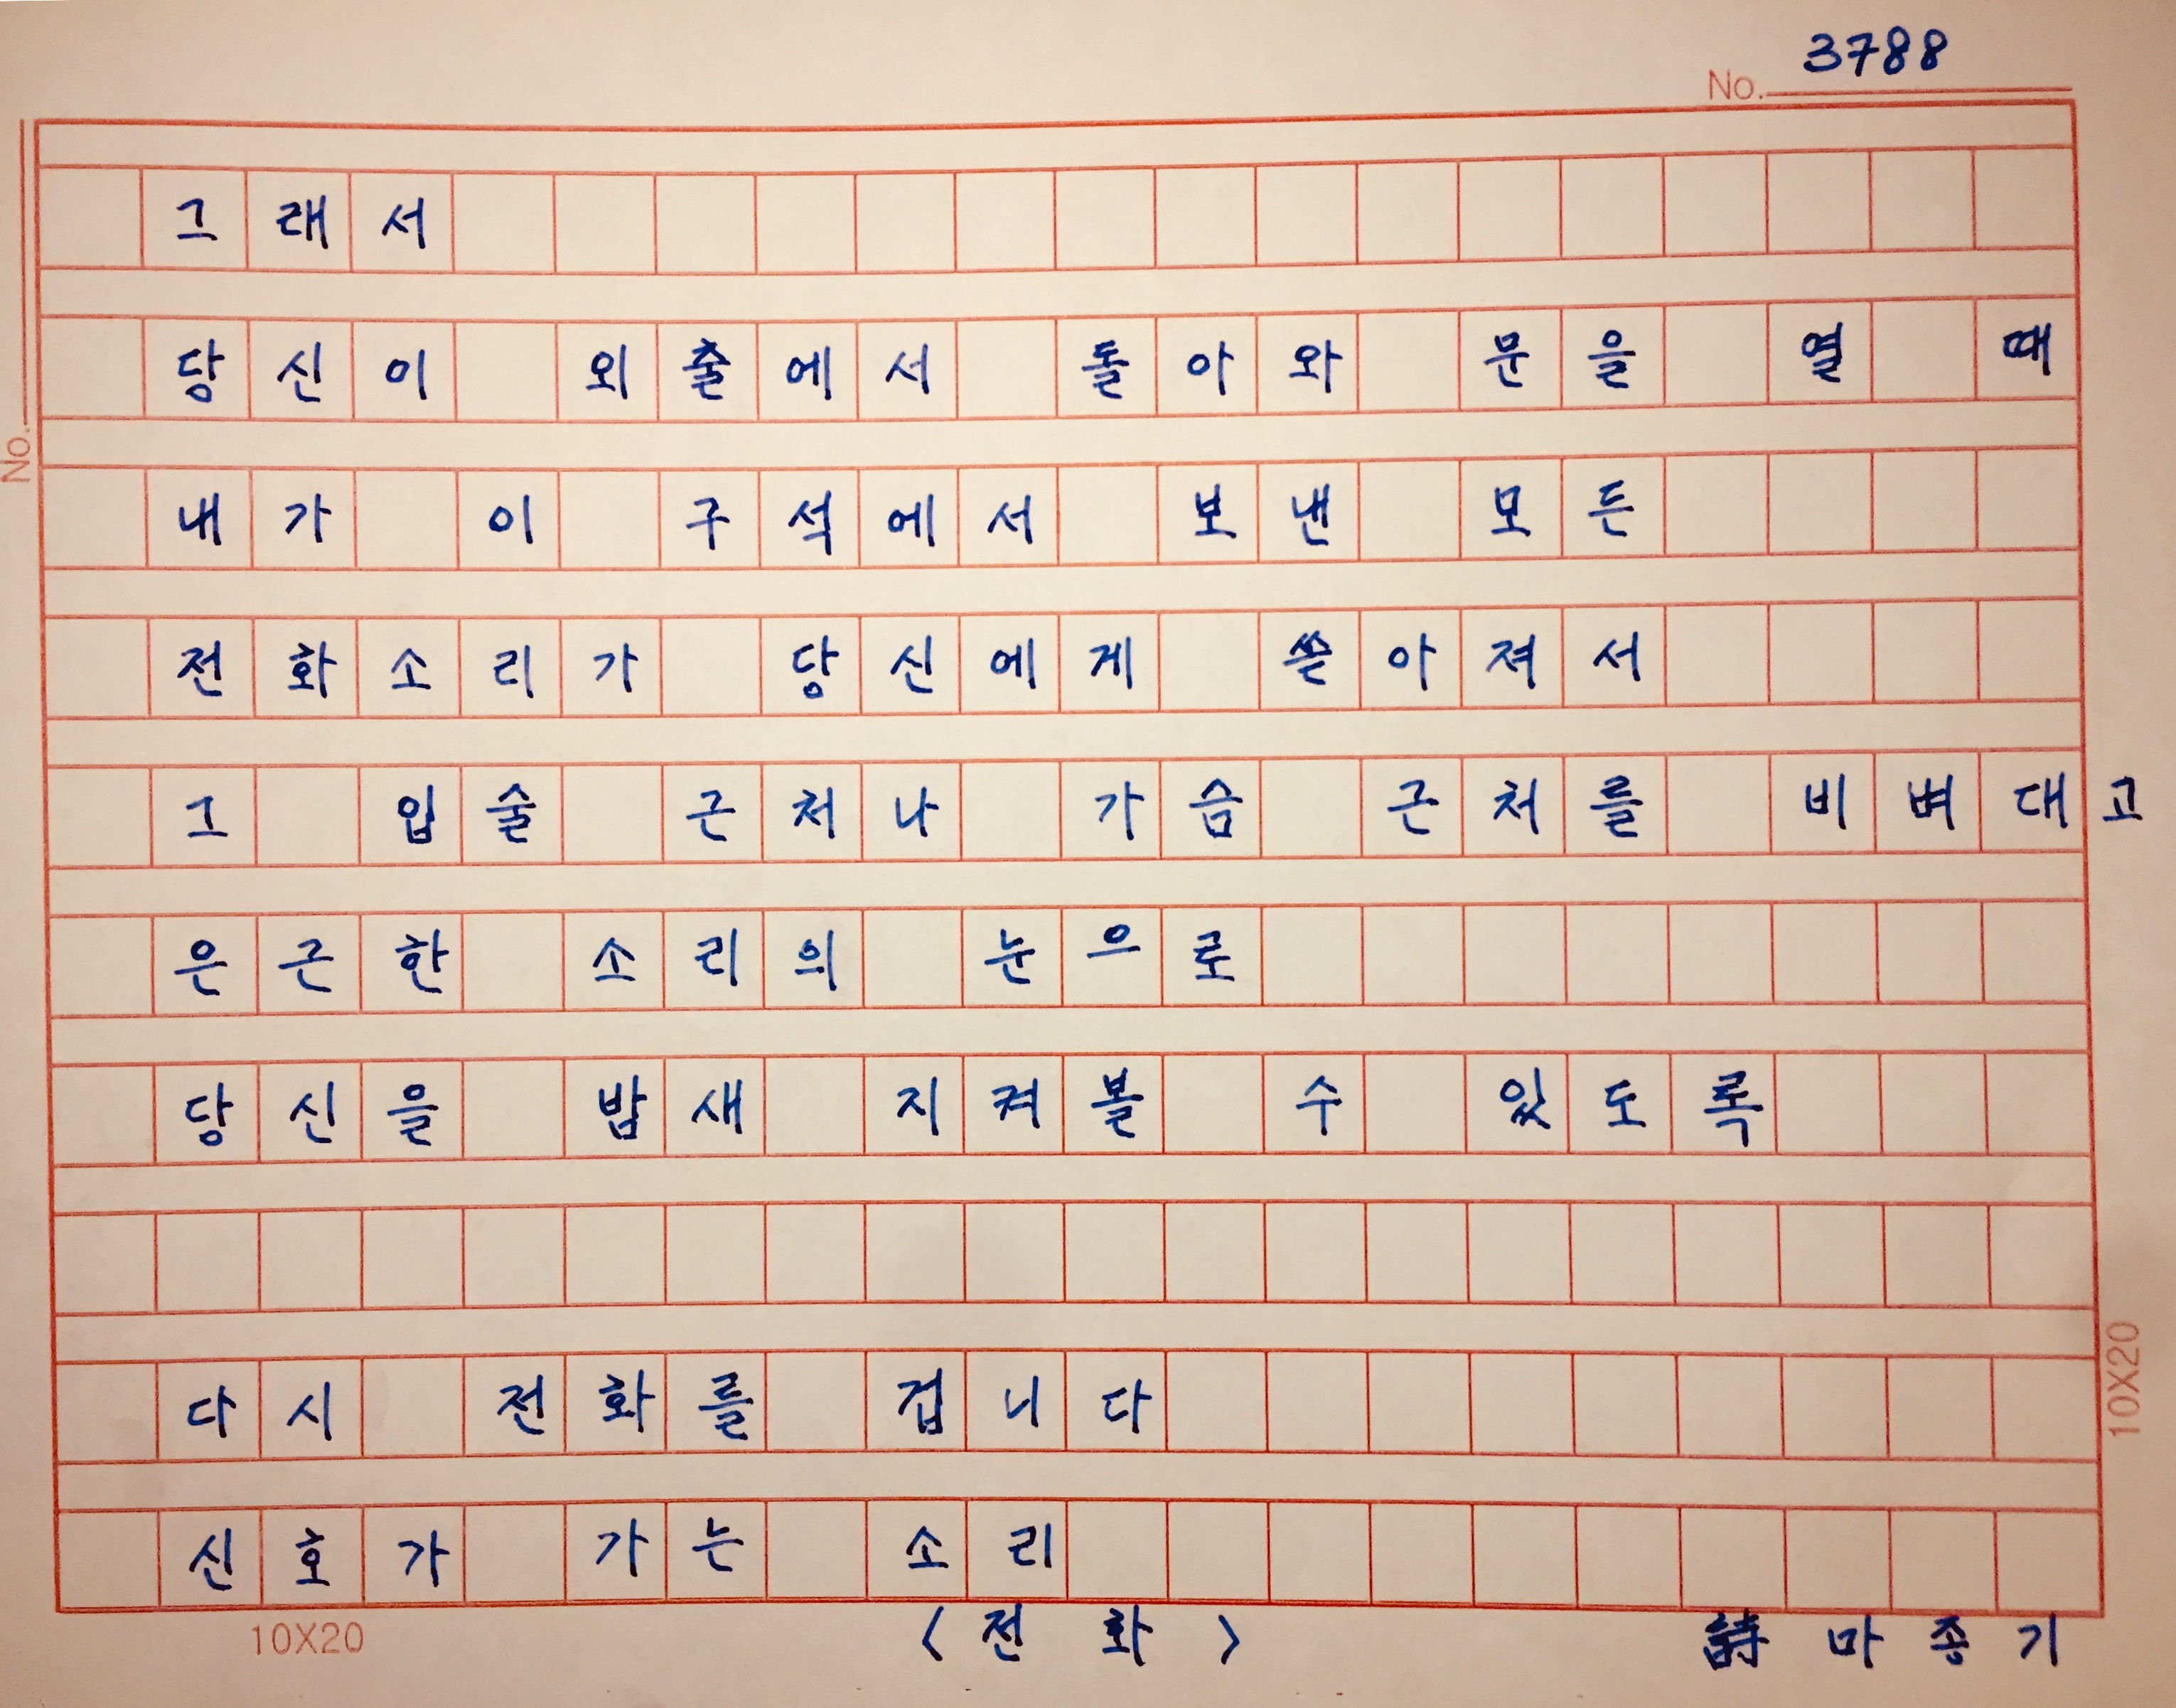 No. 3788
No.
그래서
당신이 외출에서 돌아와 문을 열 때
내가 이 구석에서 보낸 모든
전화소리가 당신에게 쏟아져서
그 입술 근처나 가슴 근처를 비벼대고
은근한 소리의 눈으로
당신을 밤새 지켜볼 수 있도록
다시 전화를 겁니다
신호가 가는 소리
10X20
10X20
〈전화〉 詩 마종기